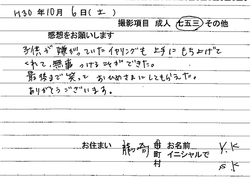 H30年10月6日(土)
撮影項目 成人 七五三 その他
感想をお願いします
子供が嫌がっていたイヤリングも上手にもち上げて
くれて、無事つけることができた。
最後まで笑っておひめさまにしてもらえた。
ありがとうございます。
お住まい 市町村 お名前 Y.K
イニシャルで S.K